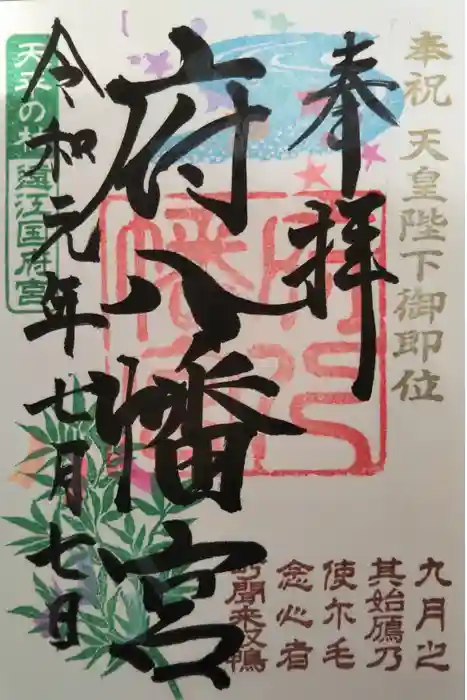 奉祝 天皇陛下御即位
奉拝
府八幡宮
令和元年七月七日
遠江国府宮
九月之
其始鴈乃
使尓毛
念心者
聞来奴鴨